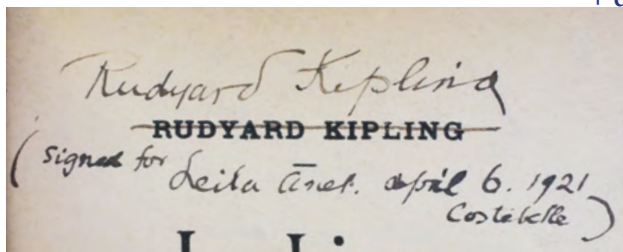 Rudyard Kipling
RUDYARD KIPLING
(Signed for
Leila April 6. 1921
Costebelle)